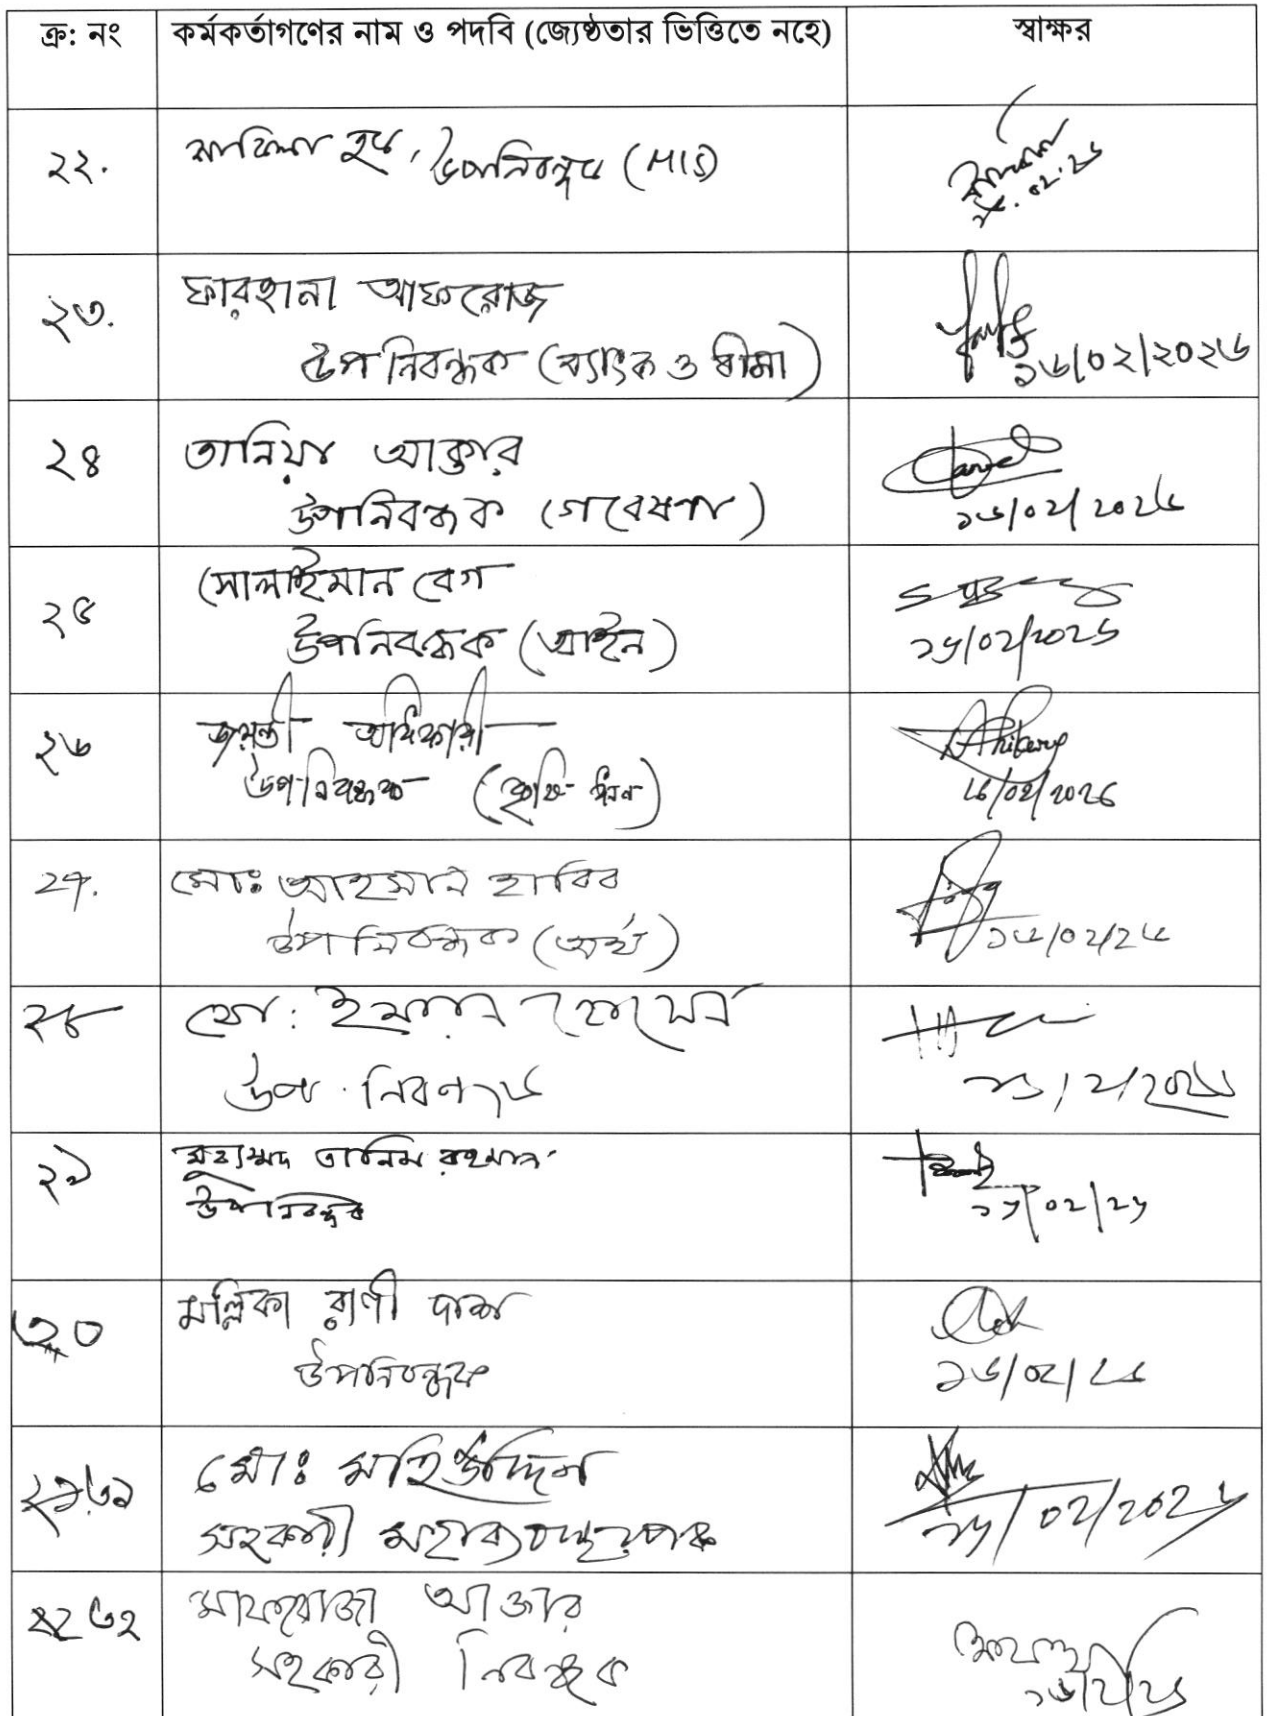 ক্র: নং কর্মকর্তাগণের নাম ও পদবি (জ্যেষ্ঠতার ভিত্তিতে নহে) স্বাক্ষর
২২. হক, উপনিবন্ধক (MIS)
২৩. ফারহানা আফরোজ
উপ নিবন্ধক (ব্যাংক ও বীমা) ১৬/০২/২০২৬
২৪ তানিয়া আক্তার
উপনিবন্ধক (গবেষণা) ১৬/০২/২০২৬
২৫ সোলাইমান বেগ
উপনিবন্ধক (আইন) ১৬/০২/২০২৬
২৬ জয়ন্তী অধিকারী
উপ-নিবন্ধক (কৃষি ঋণ) 16/02/2026
২৭. মোঃ আহসান হাবিব
উপ নিবন্ধক (অর্থ) ১৬/০২/২৬
২৮ মো: ইমরান হোসেন
উপ-নিবন্ধক ১৬/২/২০২৬
২৯ মুহাম্মদ তানিম রহমান
উপনিবন্ধক ১৬/০২/২৬
৩০ মল্লিকা রাণী দাস
উপনিবন্ধক ১৬/০২/২৬
৩১ মোঃ মহিউদ্দিন
সহকারী মহাব্যবস্থাপক ১৬/০২/২০২৬
৩২ মাফরোজা আক্তার
সহকারী নিবন্ধক ১৬/২/২৬